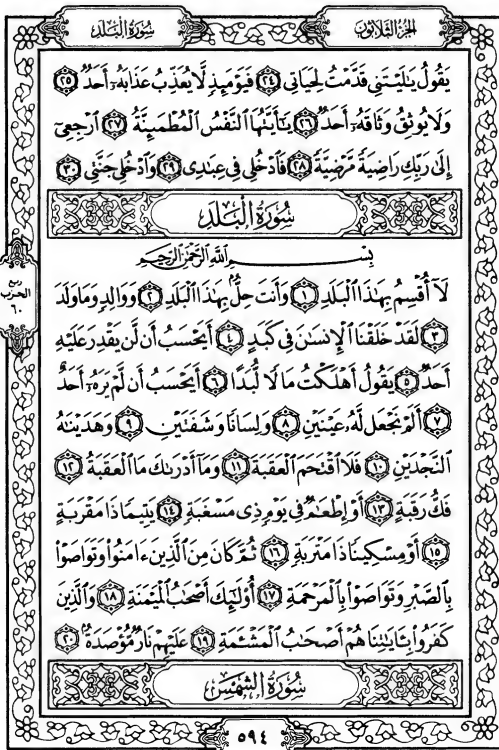 سُورَةُ الْبَلَدِ
الجُزْءُ الثَّلَاثُونَ
يَقُولُ يَٰلَيْتَنِى قَدَّمْتُ لِحَيَاتِى ٢٤ فَيَوْمَئِذٍ لَّا يُعَذِّبُ عَذَابَهُۥٓ أَحَدٌ ٢٥
وَلَا يُوثِقُ وَثَاقَهُۥٓ أَحَدٌ ٢٦ يَٰٓأَيَّتُهَا ٱلنَّفْسُ ٱلْمُطْمَئِنَّةُ ٢٧ ٱرْجِعِىٓ
إِلَىٰ رَبِّكِ رَاضِيَةً مَّرْضِيَّةً ٢٨ فَٱدْخُلِى فِى عِبَٰدِى ٢٩ وَٱدْخُلِى جَنَّتِى ٣٠
سُورَةُ الْبَلَدِ
بِسْمِ ٱللَّهِ ٱلرَّحْمَٰنِ ٱلرَّحِيمِ
لَآ أُقْسِمُ بِهَٰذَا ٱلْبَلَدِ ١ وَأَنتَ حِلٌّۢ بِهَٰذَا ٱلْبَلَدِ ٢ وَوَالِدٍ وَمَا وَلَدَ
٣ لَقَدْ خَلَقْنَا ٱلْإِنسَٰنَ فِى كَبَدٍ ٤ أَيَحْسَبُ أَن لَّن يَقْدِرَ عَلَيْهِ
أَحَدٌ ٥ يَقُولُ أَهْلَكْتُ مَالًا لُّبَدًا ٦ أَيَحْسَبُ أَن لَّمْ يَرَهُۥٓ أَحَدٌ
٧ أَلَمْ نَجْعَل لَّهُۥ عَيْنَيْنِ ٨ وَلِسَانًا وَشَفَتَيْنِ ٩ وَهَدَيْنَٰهُ
ٱلنَّجْدَيْنِ ١٠ فَلَا ٱقْتَحَمَ ٱلْعَقَبَةَ ١١ وَمَآ أَدْرَىٰكَ مَا ٱلْعَقَبَةُ ١٢
فَكُّ رَقَبَةٍ ١٣ أَوْ إِطْعَٰمٌ فِى يَوْمٍ ذِى مَسْغَبَةٍ ١٤ يَتِيمًا ذَا مَقْرَبَةٍ
١٥ أَوْ مِسْكِينًا ذَا مَتْرَبَةٍ ١٦ ثُمَّ كَانَ مِنَ ٱلَّذِينَ ءَامَنُوا۟ وَتَوَاصَوْا۟
بِٱلصَّبْرِ وَتَوَاصَوْا۟ بِٱلْمَرْحَمَةِ ١٧ أُو۟لَٰٓئِكَ أَصْحَٰبُ ٱلْمَيْمَنَةِ ١٨ وَٱلَّذِينَ
كَفَرُوا۟ بِـَٔايَٰتِنَا هُمْ أَصْحَٰبُ ٱلْمَشْـَٔمَةِ ١٩ عَلَيْهِمْ نَارٌ مُّؤْصَدَةٌۢ ٢٠
سُورَةُ الشَّمْسِ
ربع
الحزب
٦٠
٥٩٤